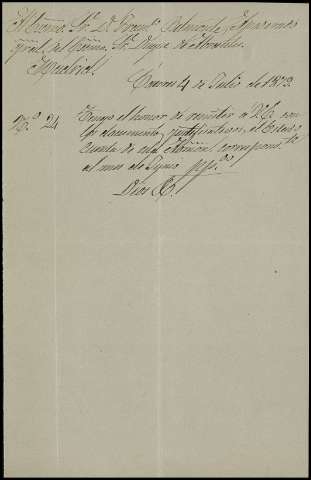 Al Excmo. Sr. Dn. Franco. Apoderado
Gral. del Excmo. Sr. Duque de Abrantes
Madrid.
4 de Julio de 1873
No. 24 Tengo el honor de remitir a V.E. con
los documentos justificativos, el Estado
cuenta de esta Admon. correspondte.
al mes de Junio ppdo.
Dios &.